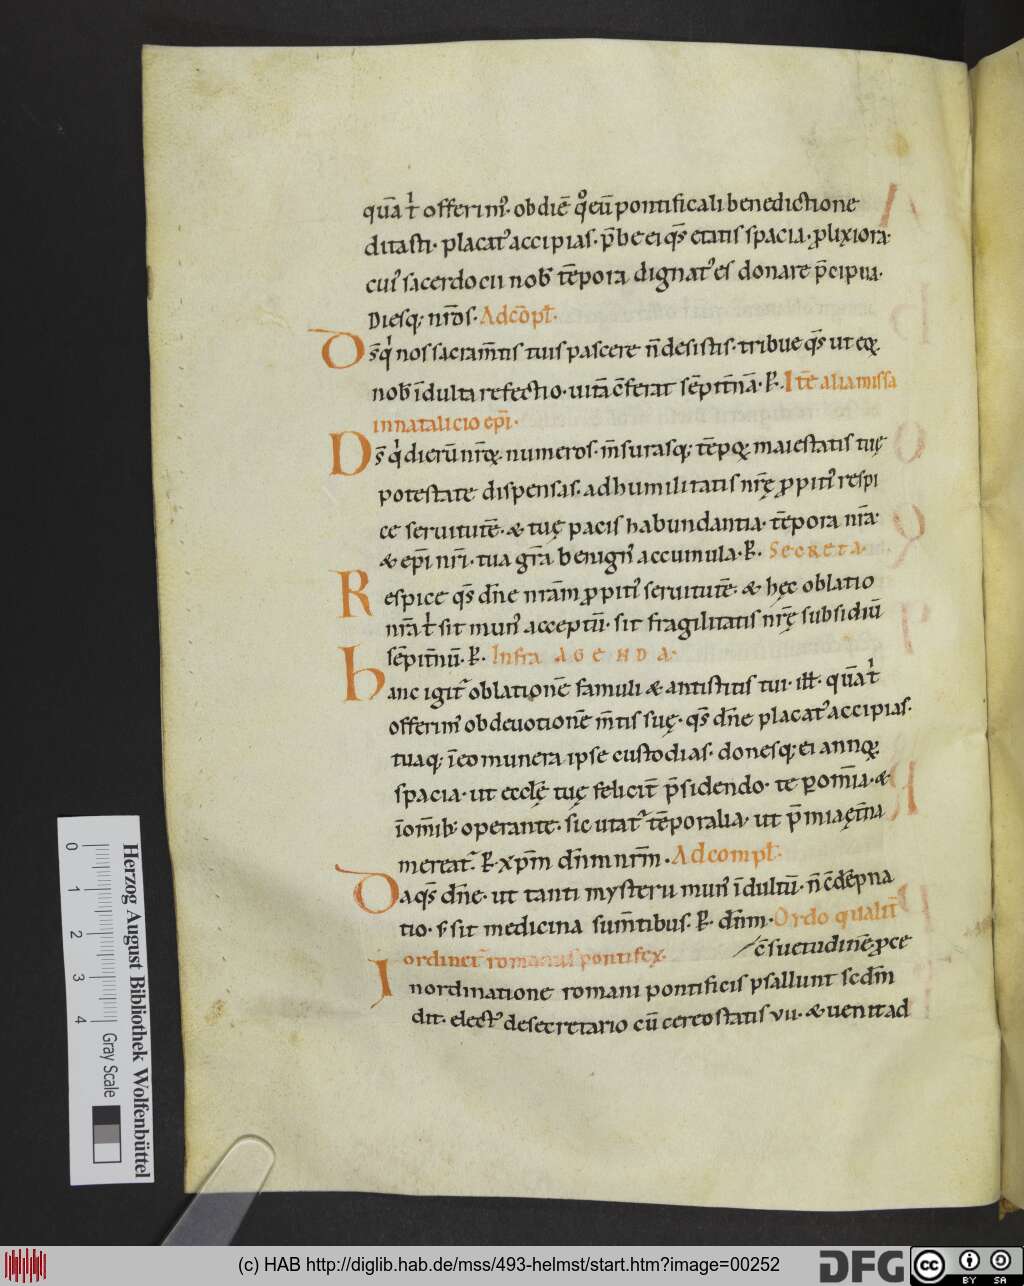 quā̄t offerim᾽. ob diē q̊ eū pontificali benedictione
ditasti. placat᾽ accipias. p̄be ei q̄s etatis spacia. plixiora.
cui᾽ sacerdocii nob̄ tēpora dignat᾽ es donare p̄cipua.
Diesq; nr̄os. Ad cōpl̄.
D̄s q¹ nos sacram̄tis tuis pascere n̄ desistis. tribue q̄s ut eoꝝ
nob̄ īdulta refectio. uitā c̄ferat sēpit̄nā. P̄. Itē alia missa
in natalicio ep̄i.
D̄s q¹ dierū nr̄oꝝ numeros. m̄surasq; tēpoꝝ maiestatis tuę
potestate dispensas. ad humilitatis nr̄ę ꝓpiti᾽ respi
ce seruitutē. & tuę pacis habundantia. tēpora nr̄a.
& ep̄i nr̄i. tua gr̄a benign᾽ accumula. P̄. Secreta.
Respice q̄s dn̄e nr̄am ꝓpiti᾽ seruitutē. & hęc oblatio
nr̄a t¹ sit mun᾽ acceptū. sit fragilitatis nr̄ę subsidiū
sēpit̄nū. P̄. Infra AGENDA.
hanc igit᾽ oblationē famuli & antistitis tui. ill̄. quā t¹
offerim᾽ ob deuotionē m̄tis suę. q̄s dn̄e placat᾽ accipias.
tuaq; ī eo munera ipse custodias. donesq; ei annoꝝ
spacia. ut eccl̄ę tuę felicit̄ p̄sidendo. te ꝑ om̄ia. &
ī om̄ib; operante. sic utat᾽ tēporalia. ut p̄mia ęt̄na
mereat᾽. P̄. xp̄m dn̄m nr̄m. Ad compl̄.
Da q̄s dn̄e. ut tanti mysterii mun᾽ īdultū. n̄ c̄dēpna
tio. s̄ sit medicina sum̄tibus. P̄. dn̄m. Ordo qualit̄
ordinet᾽ romanus pontifex. c̄suetudinē ꝓce
In ordinatione romani pontificis psallunt scdm̄
dit. elect᾽ de secretario cū cereostatis vii. & uenit ad
Herzog August Bibliothek Wolfenbüttel
Gray Scale
0 1 2 3 4
(c) HAB http://diglib.hab.de/mss/493-helmst/start.htm?image=00252
DFG
cc BY SA